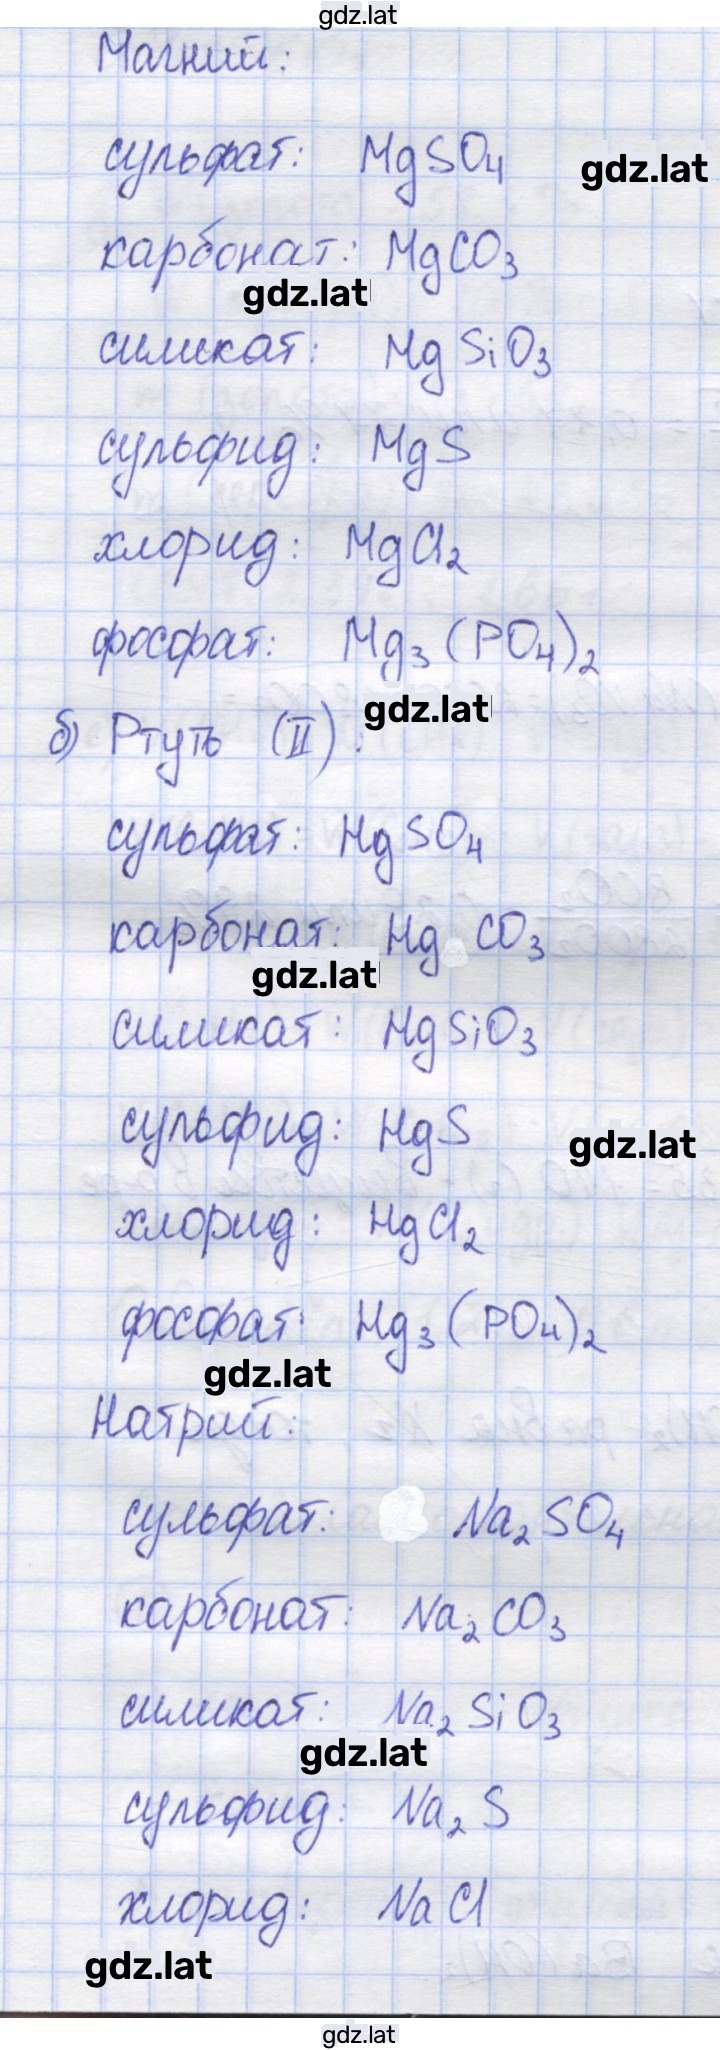 gdz.lat
Магний:
сульфат: MgSO4
gdz.lat
карбонат: MgCO3
gdz.lat
силикат: MgSiO3
сульфид: MgS
хлорид: MgCl2
фосфат: Mg3(PO4)2
gdz.lat
б) Ртуть (II):
сульфат: HgSO4
карбонат: HgCO3
gdz.lat
силикат: HgSiO3
сульфид: HgS
gdz.lat
хлорид: HgCl2
фосфат: Hg3(PO4)2
gdz.lat
Натрий:
сульфат: Na2SO4
карбонат: Na2CO3
силикат: Na2SiO3
gdz.lat
сульфид: Na2S
хлорид: NaCl
gdz.lat
gdz.lat